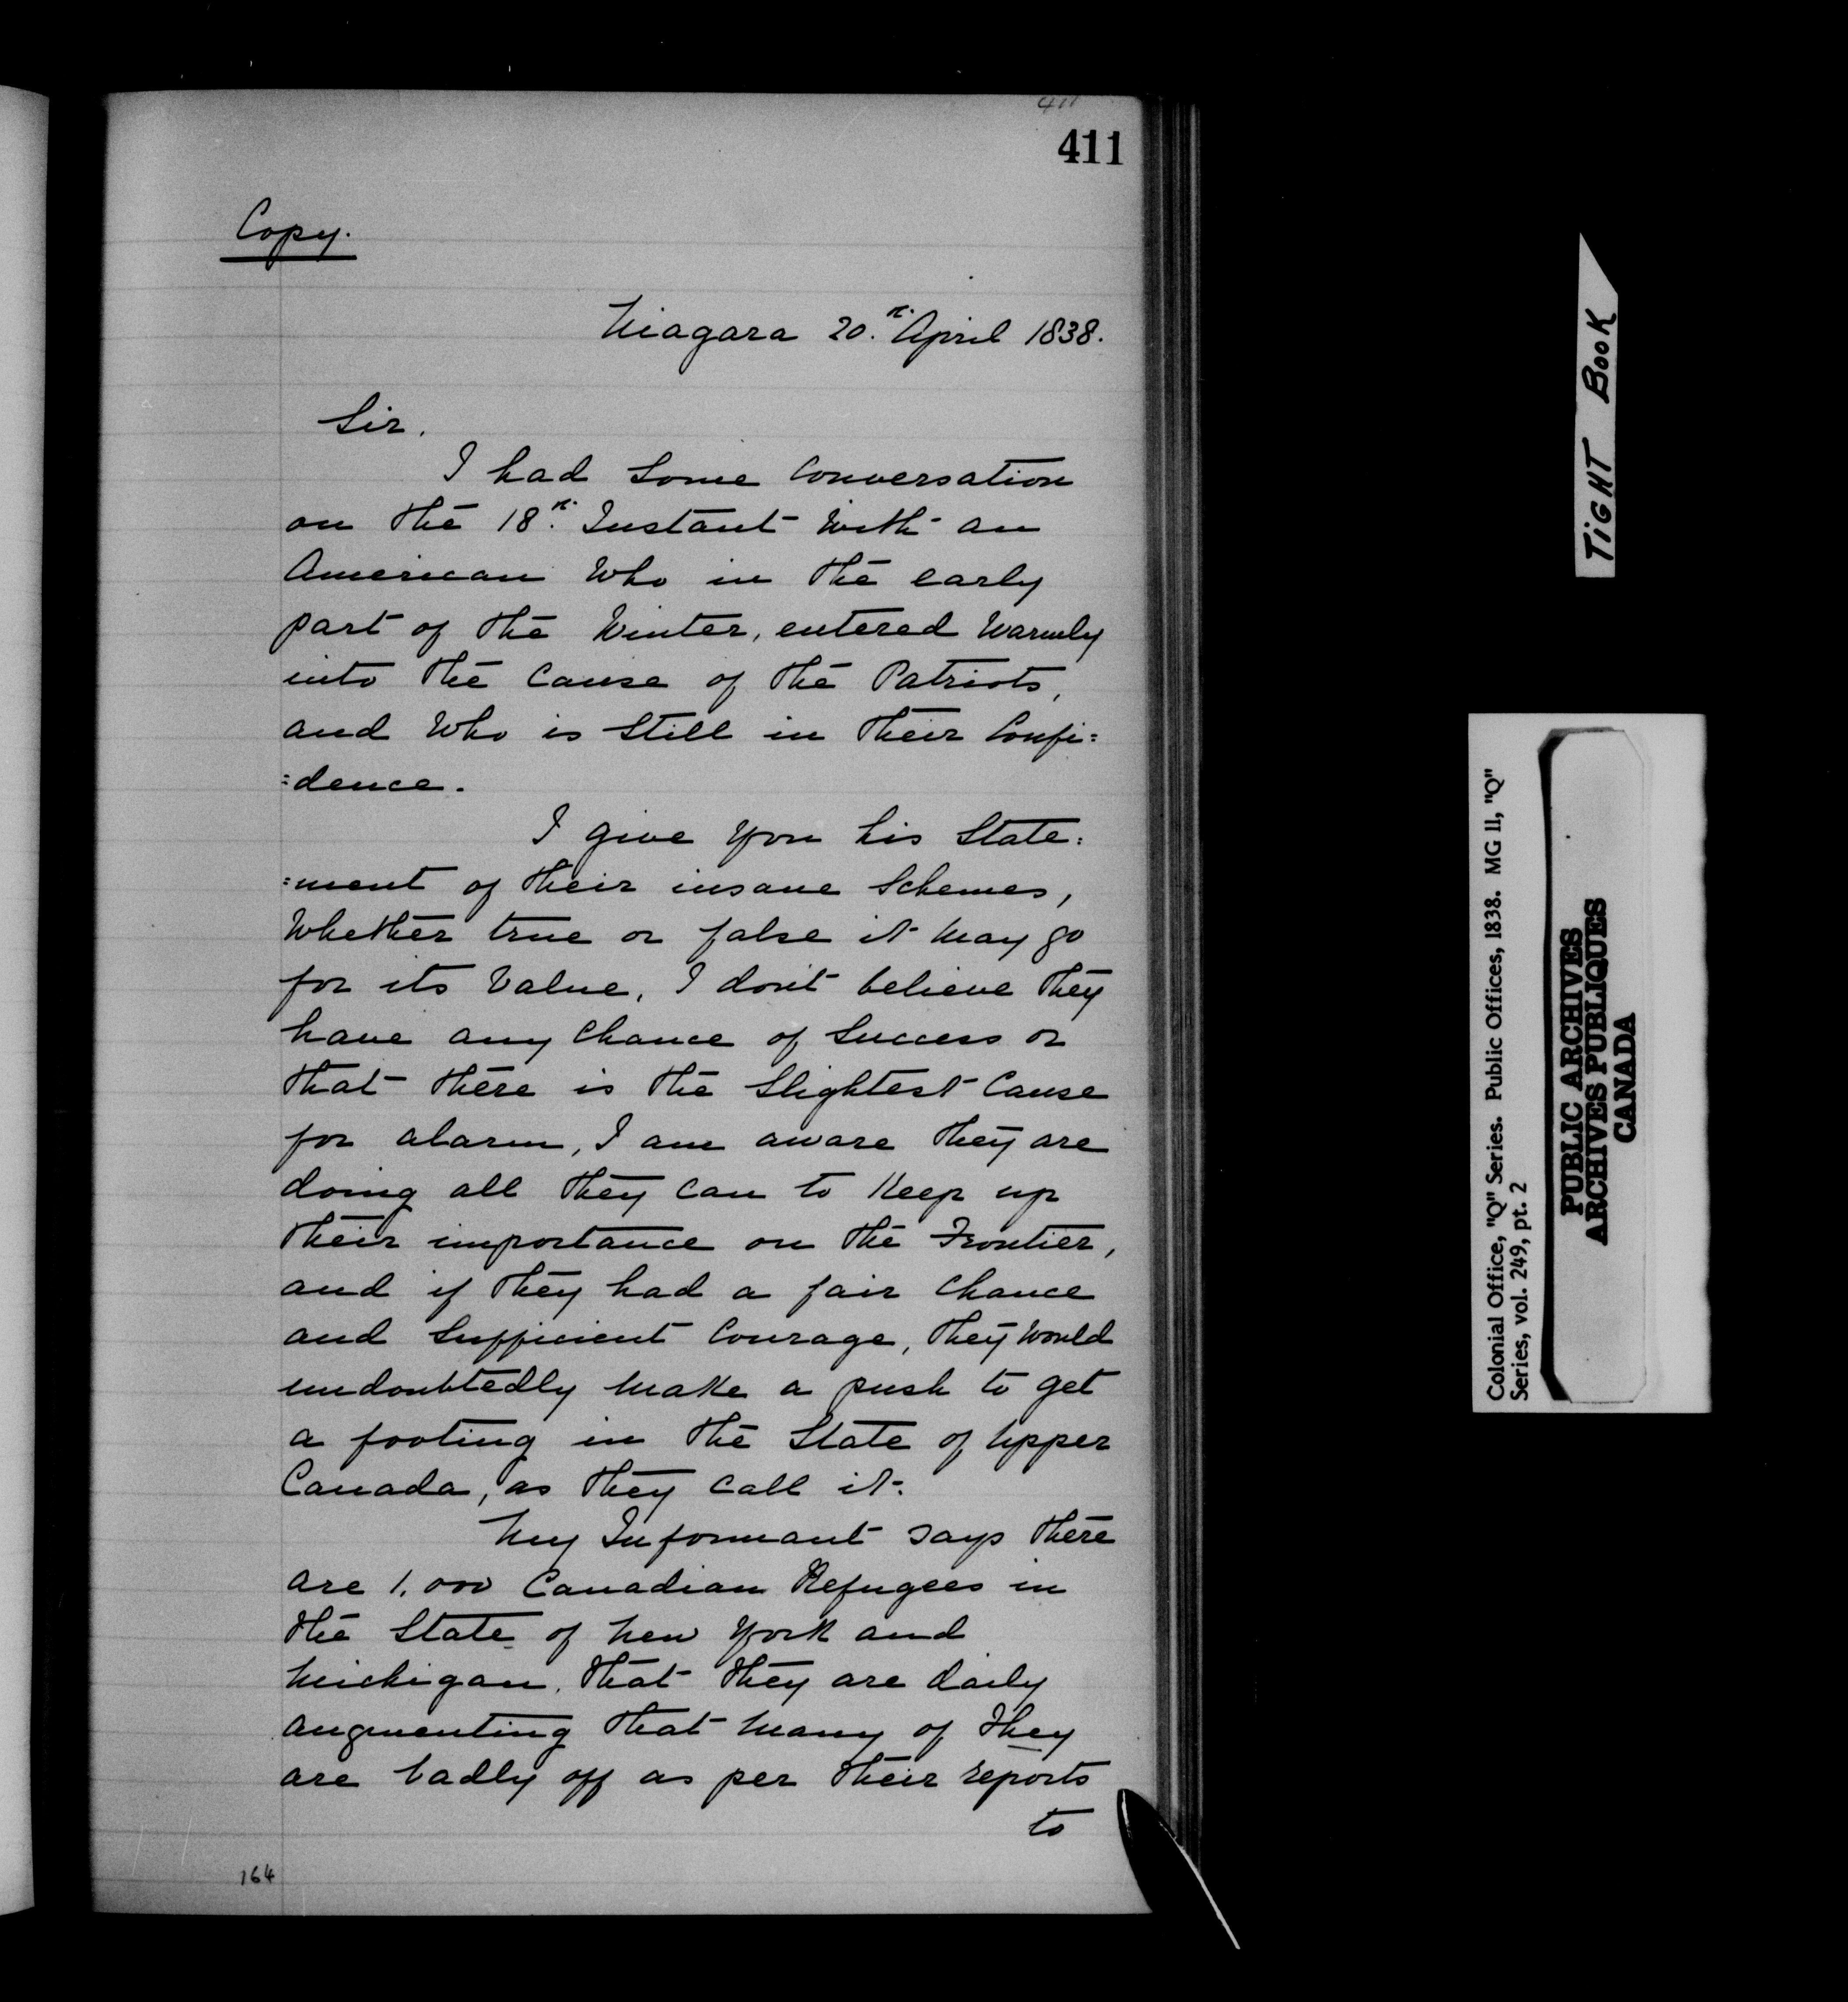 411
411
Copy.
Niagara 20.th April 1838.
Sir,
I had some Conversation
on the 18.th Instant with an
American Who in the early
part of the Winter, entered Warmly
into the Cause of the Patriots,
and Who is Still in their Confi=
=dence.
I give you his State=
=ment of their insane Schemes,
Whether true or false it may go
for its Value, I don't believe they
have any Chance of Success or
that there is the Slightest Cause
for alarm, I am aware they are
doing all they Can to Keep up
their importance on the Frontier,
and if they had a fair Chance
and Sufficient Courage, they Would
undoubtedly make a push to get
a footing in the State of Upper
Canada, as they Call it.
My Informant says there
are 1,000 Canadian Refugees in
the State of New York and
Michigan, that they are daily
augmenting that many of they
are badly off as per their reports
to
164
TiGHT BooK
Colonial Office, "Q" Series. Public Offices, 1838. MG 11, "Q"
Series, vol. 249, pt. 2
PUBLIC ARCHIVES
ARCHIVES PUBLIQUES
CANADA